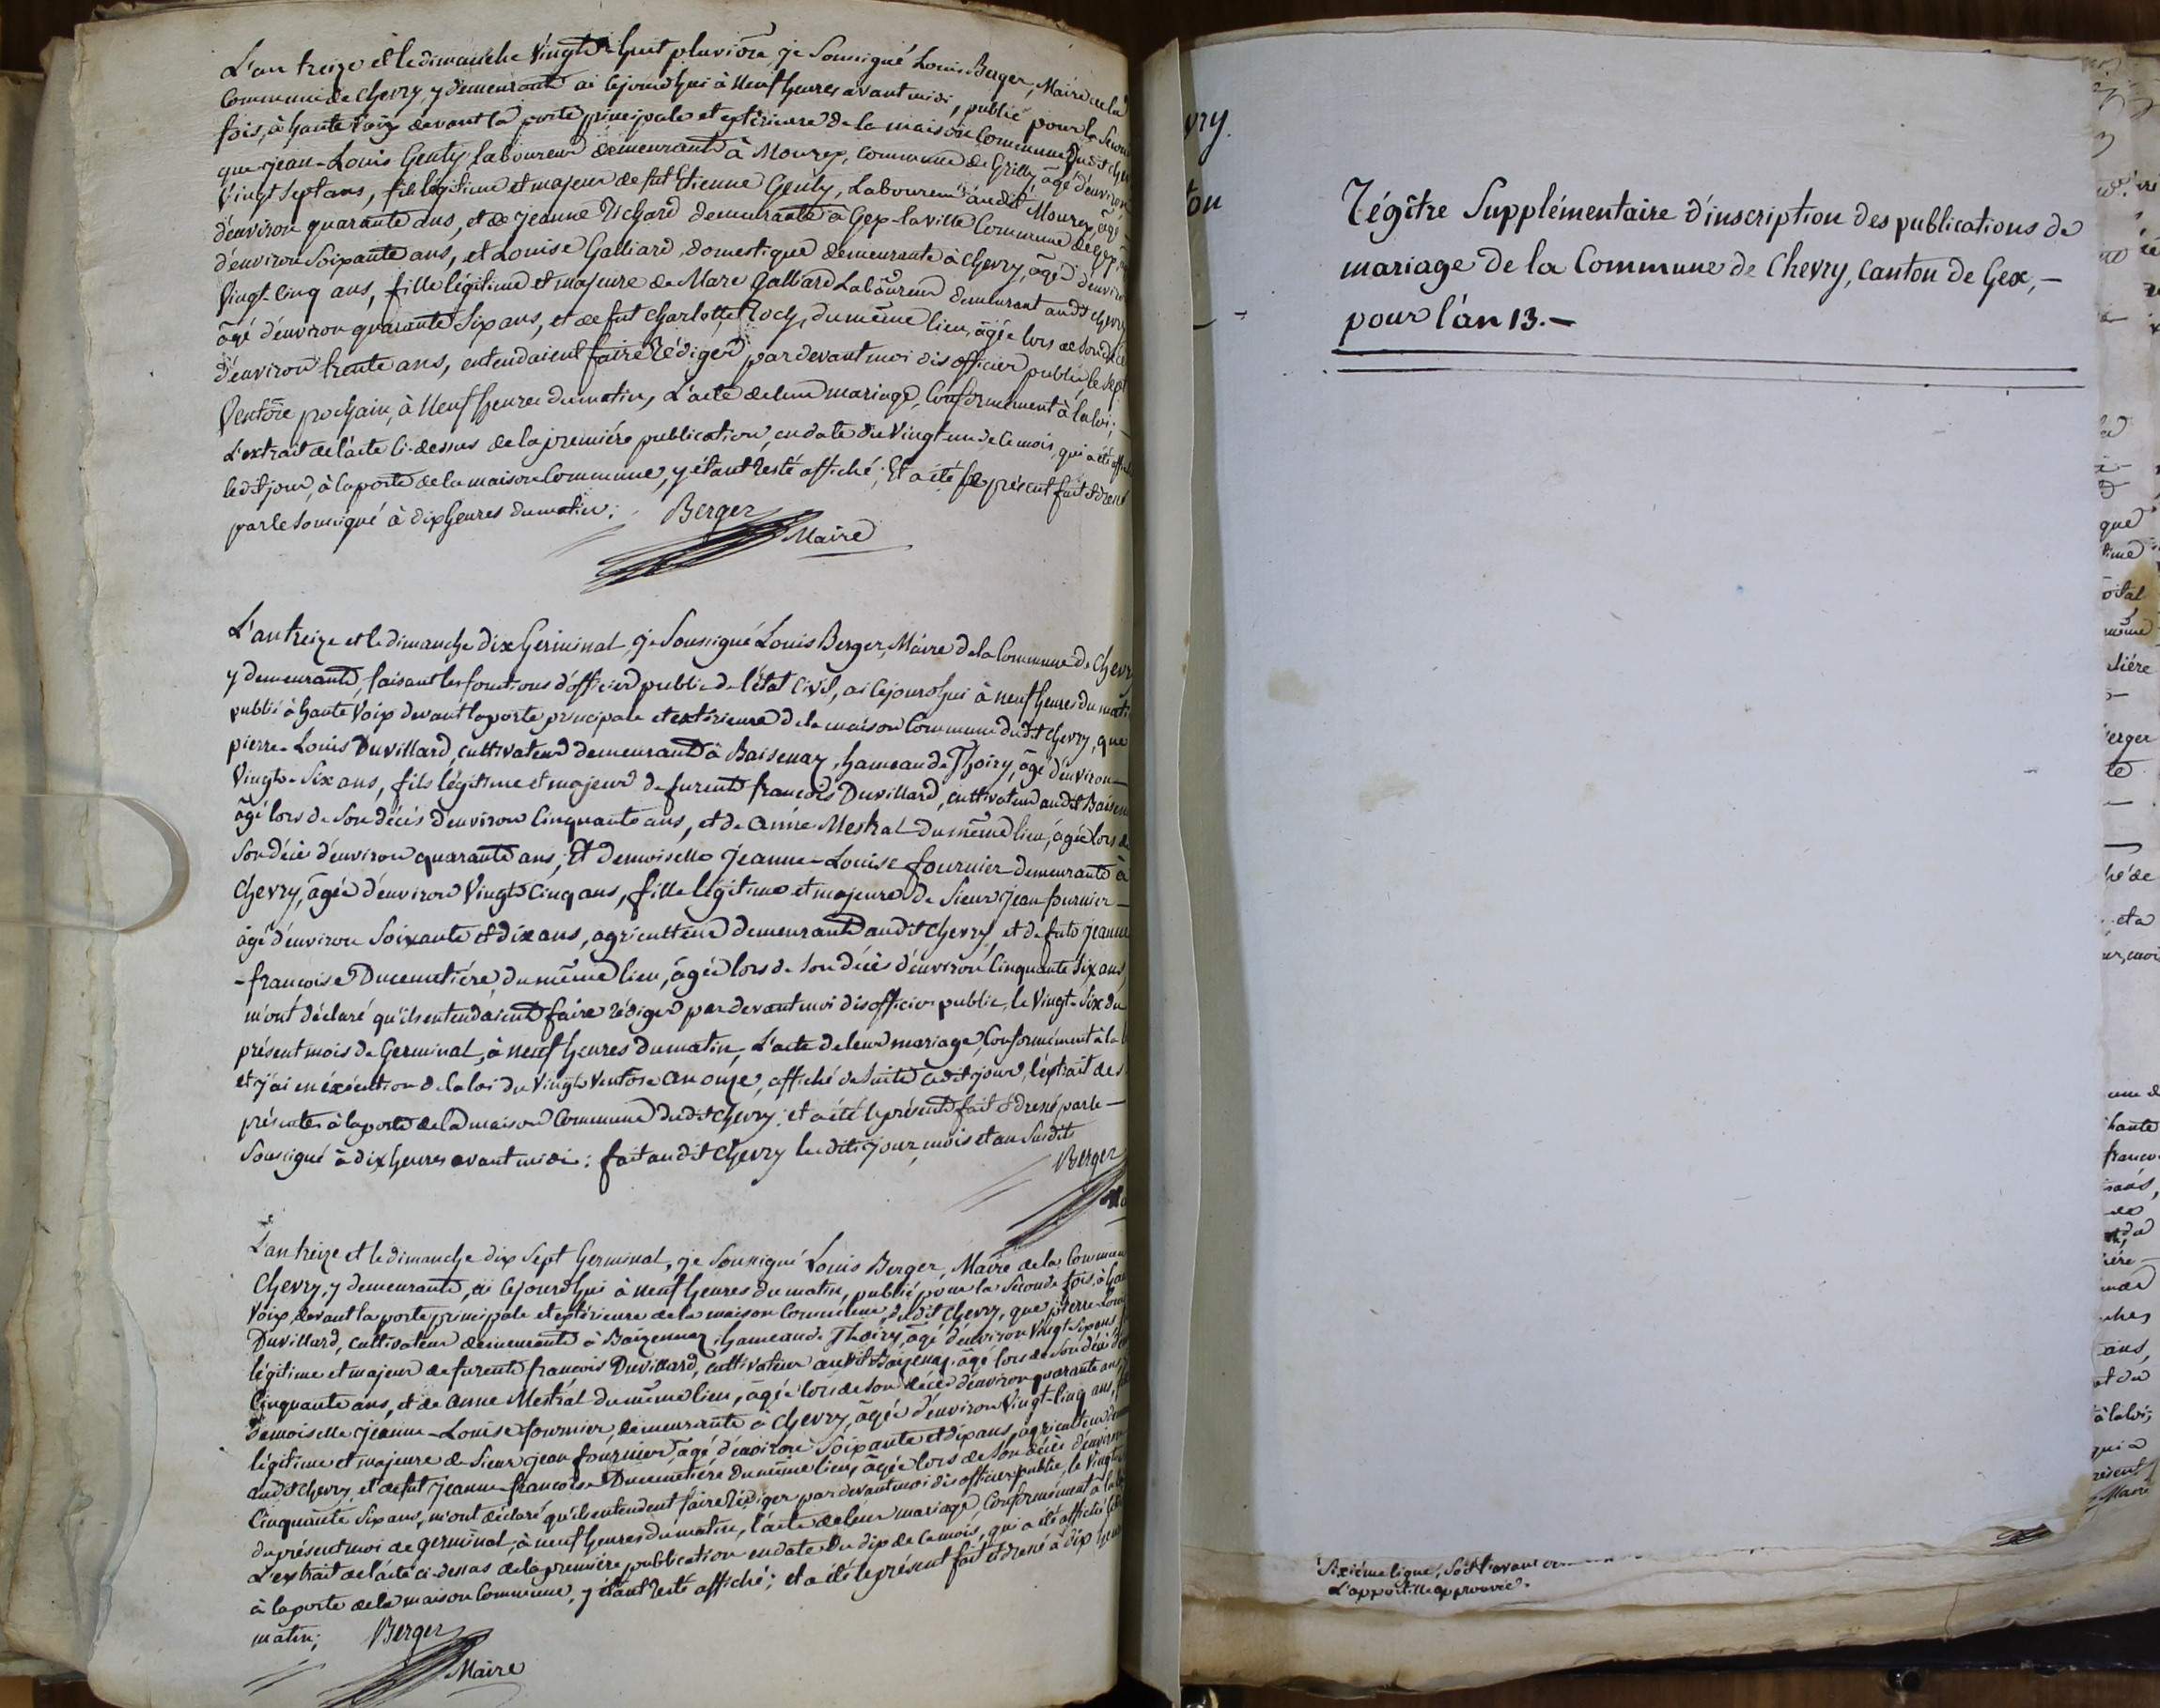 L'an treize et le dimanche vingt-huit pluviôse, je soussigné Louis Berger, Maire de la
Commune de Chevry, y demeurant ai cejourd'hui à neuf heures avant midi, publié pour la secon
fois, à haute voix devant la porte principale et extérieure de la maison commune dudit Che
que jean-Louis Genty, laboureur demeurant à Mourex, commune de Grilly, âgé d'environ
Vingt sept ans, fils légitime et majeur de fut Etienne Genty, Laboureur audit Mourex, âgé
d'environ quarante ans, et de jeanne demeurante à Gex-la ville Commune de Gex,
d'environ soixante ans, et Louise Galliard, domestique demeurante à Chevry, âgé d'enviro
Vingt-Cinq ans, fille légitime et majeure de Marc Galliard Laboureur demeurant audt Chevry
âgé d'environ quarante Six ans, et de fut Charlotte Roch, du même lieu, âgée lors de son décè
d'environ trente ans, entendaient faire rédiger, par devant moi dis officier public, le sept
Ventôse prochain, à neuf heures du matin, L'acte de leur mariage, Conformément à la loi; —
L'extrait de l'acte Ci-dessus de la première publication, en date du Vingt-un de ce mois, qui a été affi
ledit jour, à la porte de la maison Commune, y étant resté affiché; Et a été le présent fait et dressé
par le soussigné à dix heures du matin; Berger
Maire
L'an treize et le dimanche dix Germinal, je soussigné Louis Berger, Maire de la Commune de Chevr
y demeurant, faisant les fonctions d'officier public de l'état Civil, ai cejourd'hui à neuf heures du mati
publié à haute voix devant la porte principale et extérieure de la maison Commune dudit Chevry, que
pierre-Louis Duvillard, cultivateur demeurant à Baisenay, hameau de Thoiry, âgé d'environ —
Vingt-Six ans, fils légitime et majeur de furent françois Duvillard, cultivateur audit Baisen
âgé lors de son décès d'environ Cinquante ans, et de anne Mestral du même lieu, âgée lors de
son décès d'environ quarante ans; Et demoiselle Jeanne-Louise fournier demeurante à
Chevry, âgée d'environ Vingt-Cinq ans, fille légitime et majeure de Sieur jean fournier —
âgé d'environ Soixante et dix ans, agriculteur demeurant audit Chevry, et de fut Jeanne
-françoise Ducimetière, du même lieu, âgée lors de son décès d'environ Cinquante six ans,
m'ont déclaré qu'ils entendaient faire rédiger par devant moi dis officier public, le Vingt-Six du
présent mois de Germinal, à neuf heures du matin, L'acte de leur mariage, Conformément à la l
et j'ai en éxécution de la loi du vingt Ventôse an onze, affiché de suite cedit jour, l'extrait des
présentes à la porte de la maison Commune dudit Chevry; et a été le présent fait & dressé par le —
Soussigné à dix heures avant midi; fait audit Chevry lesdits jour, mois et an susdits
Berger
L'an treize et le dimanche dix Sept Germinal, je soussigné Louis Berger, Maire de la Commun
Chevry, y demeurant, ai cejourd'hui à neuf heures du matin, publié pour la seconde fois, à hau
voix, devant la porte principale et extérieure de la maison Commune dudit Chevry, que pierre-Loui
Duvillard, cultivateur demeurant à Baizenay, hameau de Thoiry, âgé d'environ vingt-six ans,
légitime et majeur de furent françois Duvillard, cultivateur audit Baizenay, âgé lors de son décès d'en
Cinquante ans, et de anne Mestral du même lieu, âgée lors de son décès d'environ quarante ans,
demoiselle jeanne-Louise fournier, demeurante à Chevry, âgée d'environ Vingt-Cinq ans,
légitime et majeure de Sieur jean fournier, âgé d'environ Soixante et dix ans, agriculteur dem
audit Chevry, et de fut jeanne-françoise Ducimetière du même lieu, âgée lors de son décès d'environ
Cinquante Six ans, m'ont déclaré qu'ils entendent faire rédiger par devant moi dis officier public, le Vingt-
du présent moi de germinal, à neuf heures du matin, l'acte de leur mariage, Conformément à la
L'extrait de l'acte ci-dessus de la première publication en date du dix de ce mois, qui a été affiché
à la porte de la maison Commune, y étant resté affiché; et a été le présent fait et dressé à dix heur
matin; Berger
Maire
vry.
ton
Régître Supplémentaire d'inscription des publications de
mariage de la Commune de Chevry, Canton de Gex, —
pour l'an 13. —
Sixième ligne,
L'appostille approuvée.